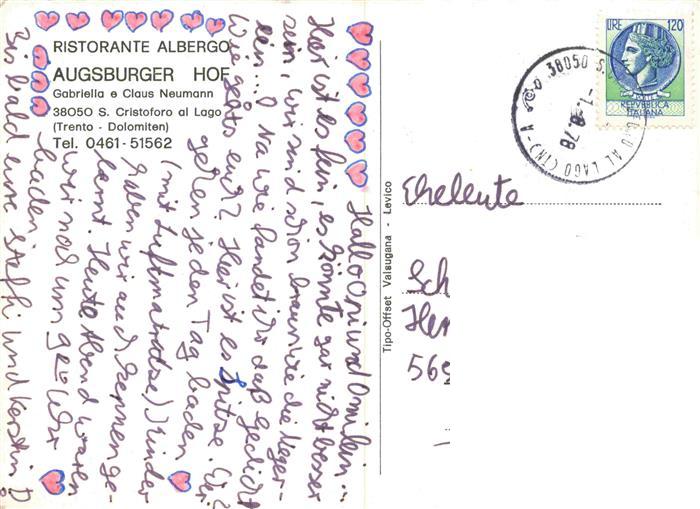 RISTORANTE ALBERGO
AUGSBURGER HOF
Gabriella e Claus Neumann
38050 S. Cristoforo al Lago
(Trento - Dolomiten)
Tel. 0461-51562
Hallo Omi und Omilein...
Hier ist es fein, es könnte gar nicht besser
sein, wir sind schon braun wie die Neger-
lein...! Na wie fandet ihr daß Gedicht
Wie gehts euch? Hier ist es Spitze. Wir
gehen jeden Tag baden
(mit Luftmatratze) Kinder
haben wir auch kennenge-
lernt. Heute Abend waren
wir noch um 9 Uhr
baden
Bis bald eure Steffi und Kerstin
Tipo-Offset Valsugana - Levico
LIRE 120
REPVBBLICA
ITALIANA
38050 S.
AL LAGO (TN)
78
Eheleute
Sch
He
56